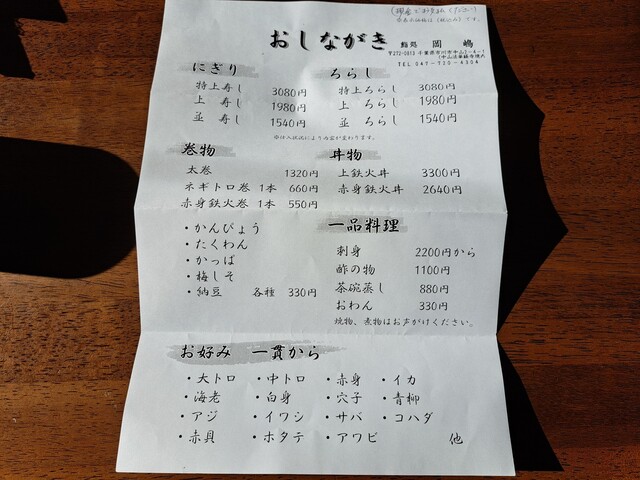 (現金でお支払ください)
※表示価格は(税込み)です。
おしながき
鮨処 岡嶋
〒272-0813 千葉県市川市中山2-4-1
(中山法華経寺境内
TEL 047-700-4304
にぎり
特上寿し 3080円
上 寿し 1980円
並 寿し 1540円
ちらし
特上ちらし 3080円
上 ちらし 1980円
並 ちらし 1540円
※仕入状況により内容が変わります。
巻物
太巻 1320円
ネギトロ巻 1本 660円
赤身鉄火巻 1本 550円
・かんぴょう
・たくわん
・かっぱ
・梅しそ
・納豆 各種 330円
丼物
上鉄火丼 3300円
赤身鉄火丼 2640円
一品料理
刺身 2200円から
酢の物 1100円
茶碗蒸し 880円
おわん 330円
焼物、煮物はお声がけください。
お好み 一貫から
・大トロ ・中トロ ・赤身 ・イカ
・海老 ・白身 ・穴子 ・青柳
・アジ ・イワシ ・サバ ・コハダ
・赤貝 ・ホタテ ・アワビ 他